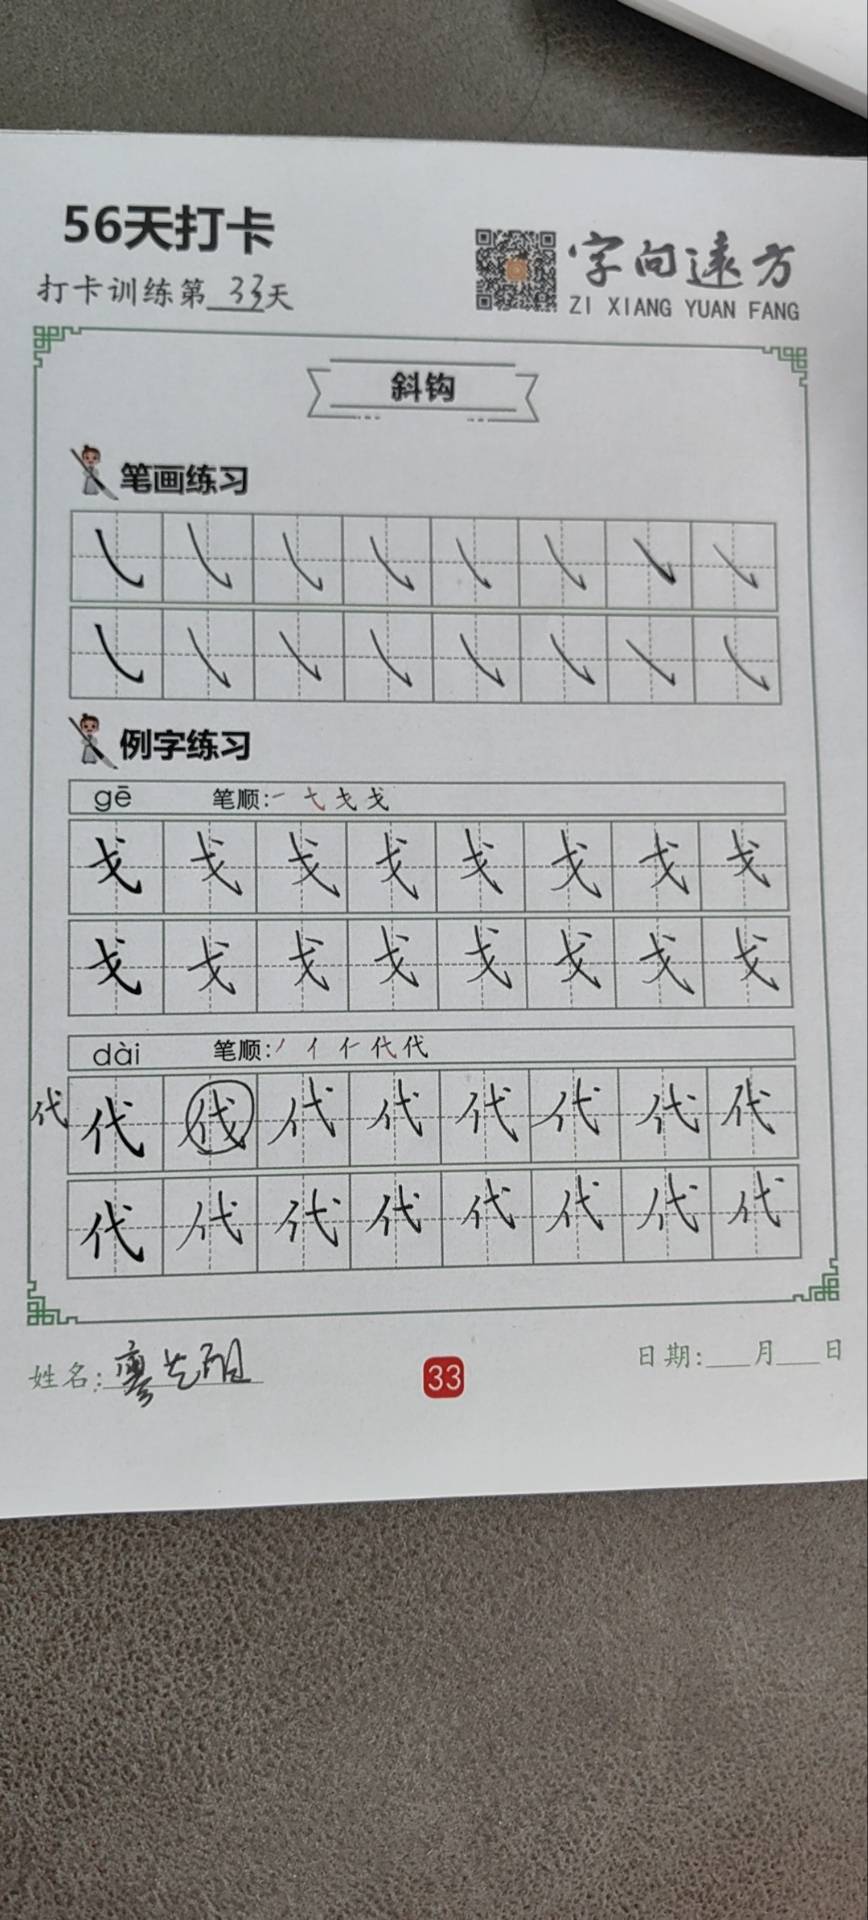 56天打卡
打卡训练第33天
字向远方
ZI XIANG YUAN FANG
斜钩
笔画练习
例字练习
gē 笔顺:一 弋 戈 戈
戈 戈 戈 戈 戈 戈 戈 戈
戈 戈 戈 戈 戈 戈 戈 戈
dài 笔顺:丿 亻 仁 代 代
代 代 伐 代 代 代 代 代 代
代 代 代 代 代 代 代 代
姓名: 廖
33
日期:___月___日